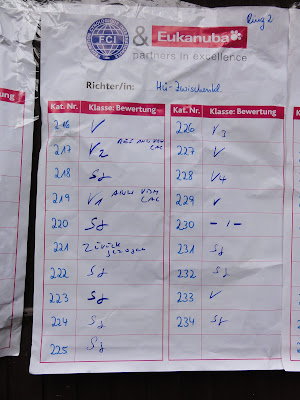 Ring 2
FCI & Eukanuba
partners in excellence
Richter/in:
Kat. Nr. Klasse: Bewertung
216 V
217 V2
218 Sg
219 V1
220 Sg
221 Zurück gezogen
222 Sg
223 Sg
224 Sg
225 Sg
Kat. Nr. Klasse: Bewertung
226 V3
227 V
228 V4
229 V
230 - / -
231 Sg
232 Sg
233 V
234 Sg
Eukanuba